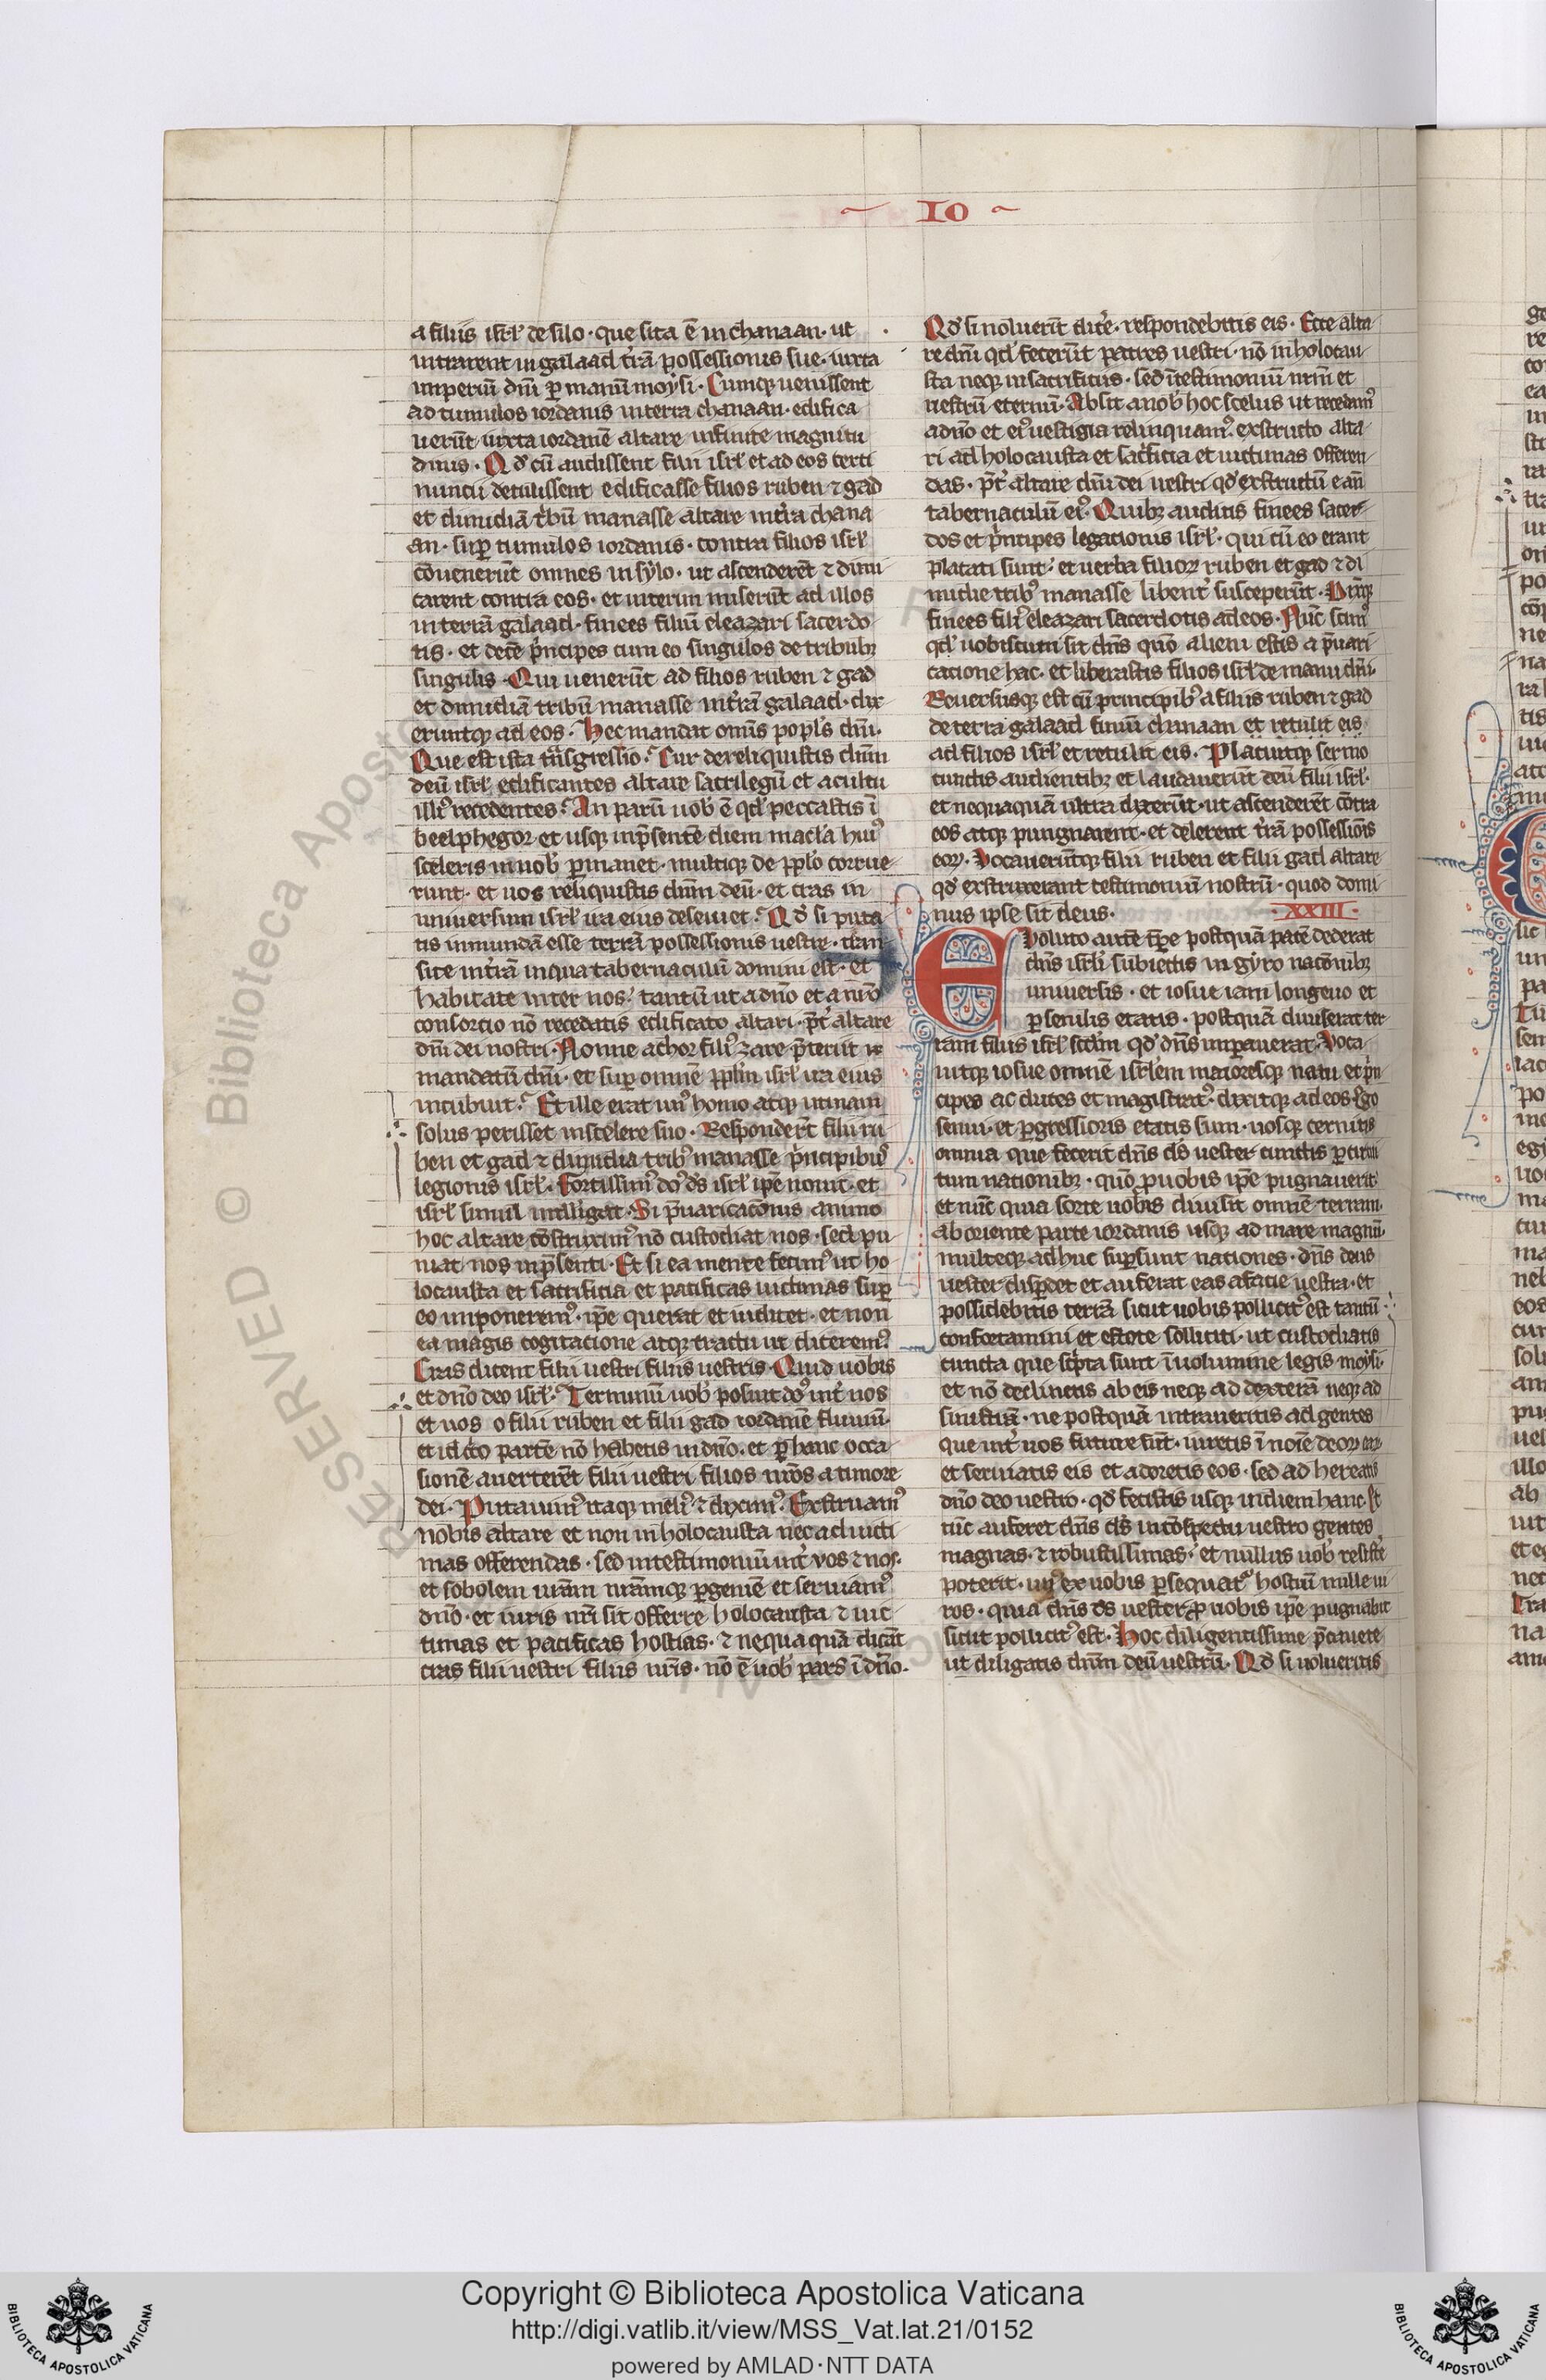 ~ IO ~
a filiis isrl' de silo · que sita ē in chanaan · ut
intrarent in galaad t'rā possessionis sue · iuxta
imperiū dnī p manū moysi · Cumq; uenissent
ad tumulos iordanis in terra chanaan · edifica
uerūt iuxta iordanē altare infinite magnitu
dinis · Qd' cū audissent filii isrl' et ad eos certi
nuncii detulissent edificasse filios ruben ⁊ gad
et dimidiā t'bū manasse altare in t'ra chana
an · sup tumulos iordanis · contra filios isrl'
cōuenerūt omnes in sylo · ut ascenderēt ⁊ dimi
carent contra eos · et interim miserūt ad illos
in terrā galaad · finees filiū eleazari sacerdo
tis · et decē p'ncipes cum eo singulos de tribub;
singulis · Qui uenerūt ad filios ruben ⁊ gad
et dimidiā tribū manasse in t'rā galaad · dix
eruntq; ad eos · Hec mandat omīs popl's dnī ·
Que est ista trāsgressio · Cur dereliquistis dnm
deū isrl' edificantes altare sacrilegū et a cultu
illi' recedentes · An parū uob' ē qd' peccastis ī
beelphegor et usq; in p̄sentē diem macl'a hui'
sceleris in uob' pmanet · multiq; de ppl'o corrue
runt · et uos reliquistis dnm deū · et cras in
uniuersum isrl' ira eius deseuiet · Qd' si puta
tis inmundā esse terrā possessionis uestre · tran
site in t'rā in qua tabernaculū domini est · et
habitate inter nos · tantū ut a dno et a nro
consorcio nō recedatis edificato altari · p̄t' altare
dnī dei nostri · Nonne achor fili' zare p̄teriit
mandatū dnī · et sup omnē ppl'm isrl' ira eius
incubuit · Et ille erat un' homo atq; utinam
solus perisset in scelere suo · Responder't filii ru
ben et gad ⁊ dimidia trib' manasse p'ncipibus
legionis isrl' · Fortissim' do' ds isrl' ipe nouit · et
isrl' simul intelligat · Si p̄uaricacōnis animo
hoc altare cōstruxim' nō custodiat nos · sed pu
niat nos in p̄senti · Et si ea mente fecim' ut ho
locausta et sacrificia et pacificas uictimas sup
eo imponerem' · ipe querat et iudicet · et non
ea magis cogitacione atq; tractu ut dicerem' ·
Cras dicent filii uestri filiis nostris · Quid uobis
et dno deo isrl' · Terminū uob' posuit do' int' nos
et uos o filii ruben et filii gad iordanē fluuiū ·
et idc'co partē nō habetis in dno · et p hanc occa
sionē auerterēt filii uestri filios nros a timore
dei · Putauim' itaq; meli' ⁊ dixim' · Exstruam'
nobis altare et non in holocausta nec ad uicti
mas offerendas · sed in testimoniū int' vos ⁊ nos ·
et sobolem uram nramq; pgeniē et seruiam'
dno · et iuris nri sit offerre holocausta ⁊ uic
timas et pacificas hostias · ⁊ nequaquā dicāt
cras filii uestri filiis nris · nō ē uob' pars ī dno ·
Qd' si noluerīt dic'e · respondebitis eis · Ecce alta
re dnī qd' fecerūt patres nestri · nō in holocau
sta neq; in sacrificiis · sed ī testimoniū nrm et
uestrū eternū · Absit a nob' hoc scelus ut recedam'
a dno et ei' uestigia relinquam' · exstructo alta
ri ad holocausta et sac'ficia et uictimas offeren
das · p̄t' altare dnī dei nestri qd' exstructū e añ
tabernaculū ei' · Quib; auditis finees sacer
dos et p'ncipes legationis isrl' · qui cū eo erant
placati sunt · et uerba filior; ruben et gad ⁊ di
midie trib' manasse libent' susceperūt · Dixitq;
finees fili' eleazari sacerdotis ad eos · Nūc scim'
qd' uobiscum sit dns quō alieni estis a p̄uari
catione hac · et liberastis filios isrl' de manu dnī ·
Reuersusq; est cū principib' a filiis ruben ⁊ gad
de terra galaad finiū chanaan et retulit eis
ad filios isrl' et retulit eis · Placuitq; sermo
cunctis audientib; et laudauerūt deū filii isrl' ·
et nequaquā ultra dixerūt · ut ascenderēt cōtra
eos atq; pungnarent · et delerent t'rā possessiōis
eor; · Vocauerūtq; filii ruben et filii gad altare
qd' exstruxerant testimoniū nostrū · quod domi
nus ipse sit deus · XXIII ·
Euoluto autē tpe postquā pacē dederat
dns isrl'i subiectis in gyro nacōnib;
uniuersis · et iosue iam longeuo et
psenilis etatis · postquā diuiserat ter
ram filiis isrl' scdm qd' dns imperauerat · Voca
uitq; iosue omnē isrl'em maioresq; natu et p'n
cipes ac duces et magistrat' · dixitq; ad eos · Ego
senui · et pgressioris etatis sum · uosq; cernitis
omnia que fecerit dns ds uester cunctis p circui
tum nationib; · quō p uobis ipe pugnauerit
et nūc quia sorte uobis diuisit omnē terram
ab oriente parte iordanis usq; ad mare magnū ·
multeq; adhuc supsunt nationes · dns deus
uester dispdet et auferat eas a facie uestra · et
possidebitis terrā sicut uobis pollicit' est tantū ·
confortamini et estote solliciti · ut custodiatis
cuncta que sc'pta sunt ī uolumine legis moysi ·
et nō declinetis ab eis neq; ad dexterā neq; ad
sinistrā · ne postquā intraueritis ad gentes
que int' uos future sūt · iuretis ī noīe deor; ear;
et seruiatis eis et adoretis eos · sed adhereatis
dno deo uestro · qd' fecistis usq; in diem hanc · Et
tūc auferet dns ds in cōspectu uestro gentes
magnas · ⁊ robustissimas · et nullus uob' resistē
poterit · un' ex uobis psequat' hostiū mille ui
ros · quia dns ds uester p uobis ipe pugnabit
sicut pollicit' est · Hoc diligentissime p̄cauete
ut diligatis dnm deū uestrū · Qd' si uolueritis
Copyright © Biblioteca Apostolica Vaticana
http://digi.vatlib.it/view/MSS_Vat.lat.21/0152
powered by AMLAD·NTT DATA